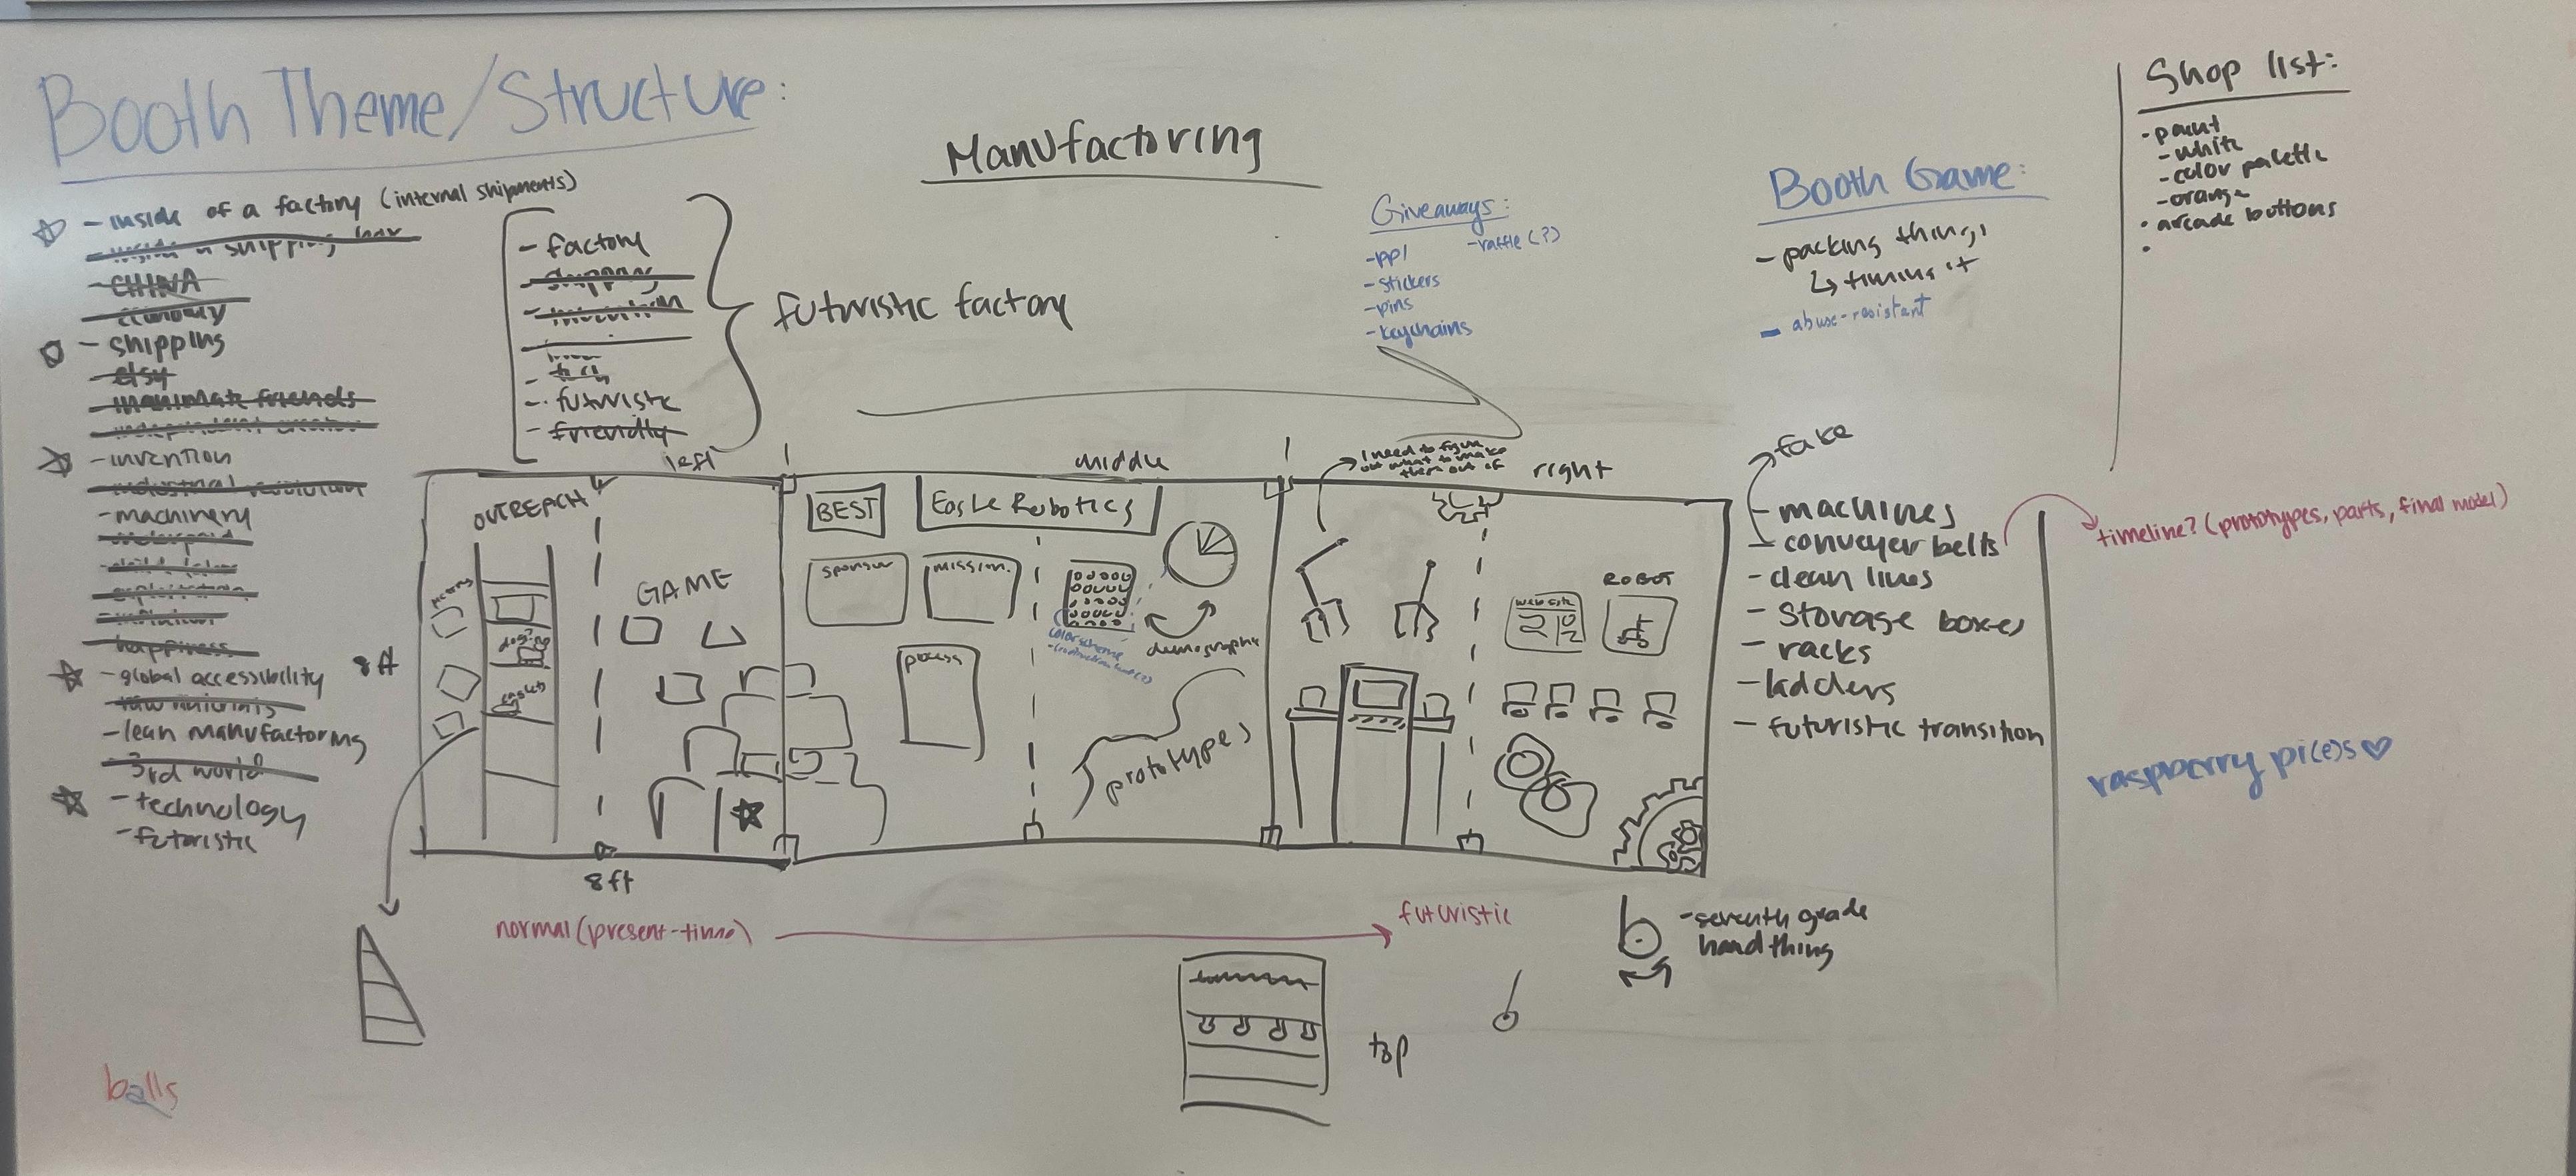 Booth Theme/Structure:
- inside of a factory (internal shipments)
- CHINA
- economy
- shipping
- etsy
- inanimate friends
- independent creator
- invention
- industrial revolution
- machinery
- happiness
- global accessibility
- raw materials
- lean manufactoring
- 3rd world
- technology
- futuristic
- factory
- shipping
- futuristic
- friendly
futuristic factory
Manufactoring
Giveaways:
- pp1
- stickers
- pins
- keychains
- raffle (?)
Booth Game:
- packing things
↳ timing it
- abuse-resistant
Shop list:
- paint
- white
- color palette
- orange
• arcade buttons
•
left
middle
right
I need to figure
out what to make
them out of
OUTREACH
GAME
8ft
8ft
BEST
Eagle Robotics
sponsor
mission
process
color scheme
demographic
prototypes
website
ROBOT
fake
- machines
- conveyer belts
- clean lines
- storage boxes
- racks
- ladders
- futuristic transition
timeline? (prototypes, parts, final model)
raspberry pi(e)s ♡
normal (present-time)
futuristic
- seventh grade
hand thing
top
balls